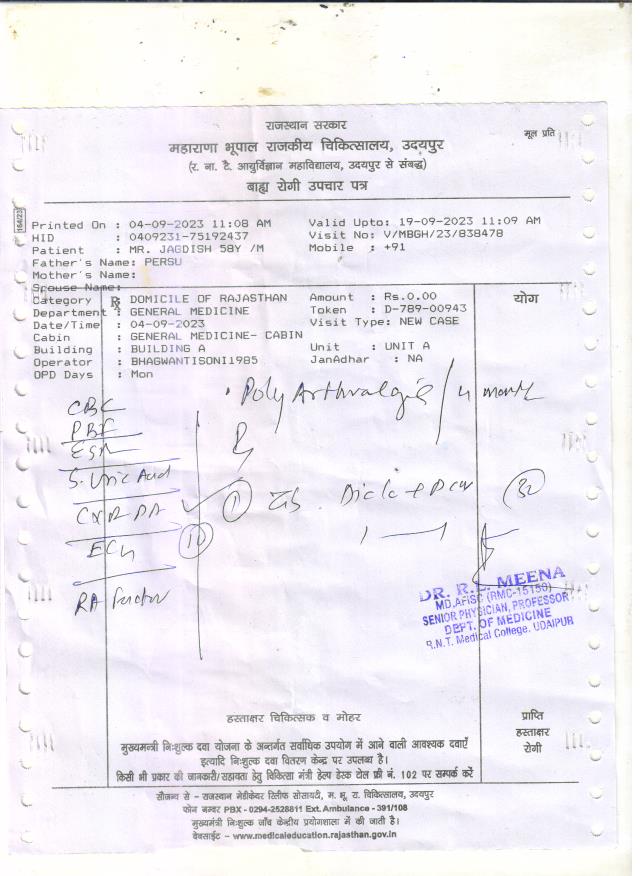 राजस्थान सरकार
मूल प्रति
महाराणा भूपाल राजकीय चिकित्सालय, उदयपुर
(र. ना. टै. आयुर्विज्ञान महाविद्यालय, उदयपुर से संबद्ध)
बाह्य रोगी उपचार पत्र
164/23
Printed On : 04-09-2023 11:08 AM Valid Upto: 19-09-2023 11:09 AM
HID : 0409231-75192437 Visit No: V/MBGH/23/838478
Patient : MR. JAGDISH 58Y /M Mobile : +91
Father's Name: PERSU
Mother's Name:
Spouse Name:
Category : DOMICILE OF RAJASTHAN Amount : Rs.0.00 योग
Department : GENERAL MEDICINE Token : D-789-00943
Date/Time : 04-09-2023 Visit Type: NEW CASE
Cabin : GENERAL MEDICINE- CABIN
Building : BUILDING A Unit : UNIT A
Operator : BHAGWANTISONI1985 JanAdhar : NA
OPD Days : Mon
Poly Arthralgia / 4 month
CBC
PBF
ESR
S. Uric Acid
CXR PA
ECG
RA factor
R
1 Tab. Diclo + Para
1 — 1
10
DR. R.L. MEENA
MD,AFISC (RMC-15150)
SENIOR PHYSICIAN, PROFESSOR
DEPT. OF MEDICINE
R.N.T. Medical College, UDAIPUR
हस्ताक्षर चिकित्सक व मोहर
प्राप्ति
हस्ताक्षर
रोगी
मुख्यमन्त्री निःशुल्क दवा योजना के अन्तर्गत सर्वाधिक उपयोग में आने वाली आवश्यक दवाएँ
इत्यादि निःशुल्क दवा वितरण केन्द्र पर उपलब्ध है।
किसी भी प्रकार की जानकारी/सहायता हेतु चिकित्सा मंत्री हेल्प डेस्क टोल फ्री नं. 102 पर सम्पर्क करें
सौजन्य से - राजस्थान मेडीकेयर रिलीफ सोसायटी, म. भू. रा. चिकित्सालय, उदयपुर
फोन नम्बर PBX - 0294-2528811 Ext. Ambulance - 391/108
मुख्यमंत्री निःशुल्क जाँच केन्द्रीय प्रयोगशाला में की जाती है।
वेबसाईट - www.medicaleducation.rajasthan.gov.in